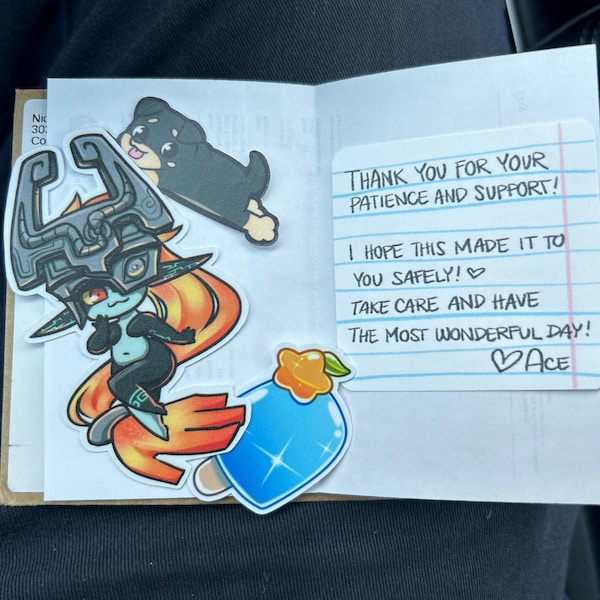 Nic
303
Co
THANK YOU FOR YOUR
PATIENCE AND SUPPORT!
I HOPE THIS MADE IT TO
YOU SAFELY! ♡
TAKE CARE AND HAVE
THE MOST WONDERFUL DAY!
♡ ACE